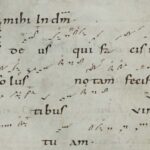 mihi In dm
de us qui fa cis m
solus notam fecis
tibus vir
tu am